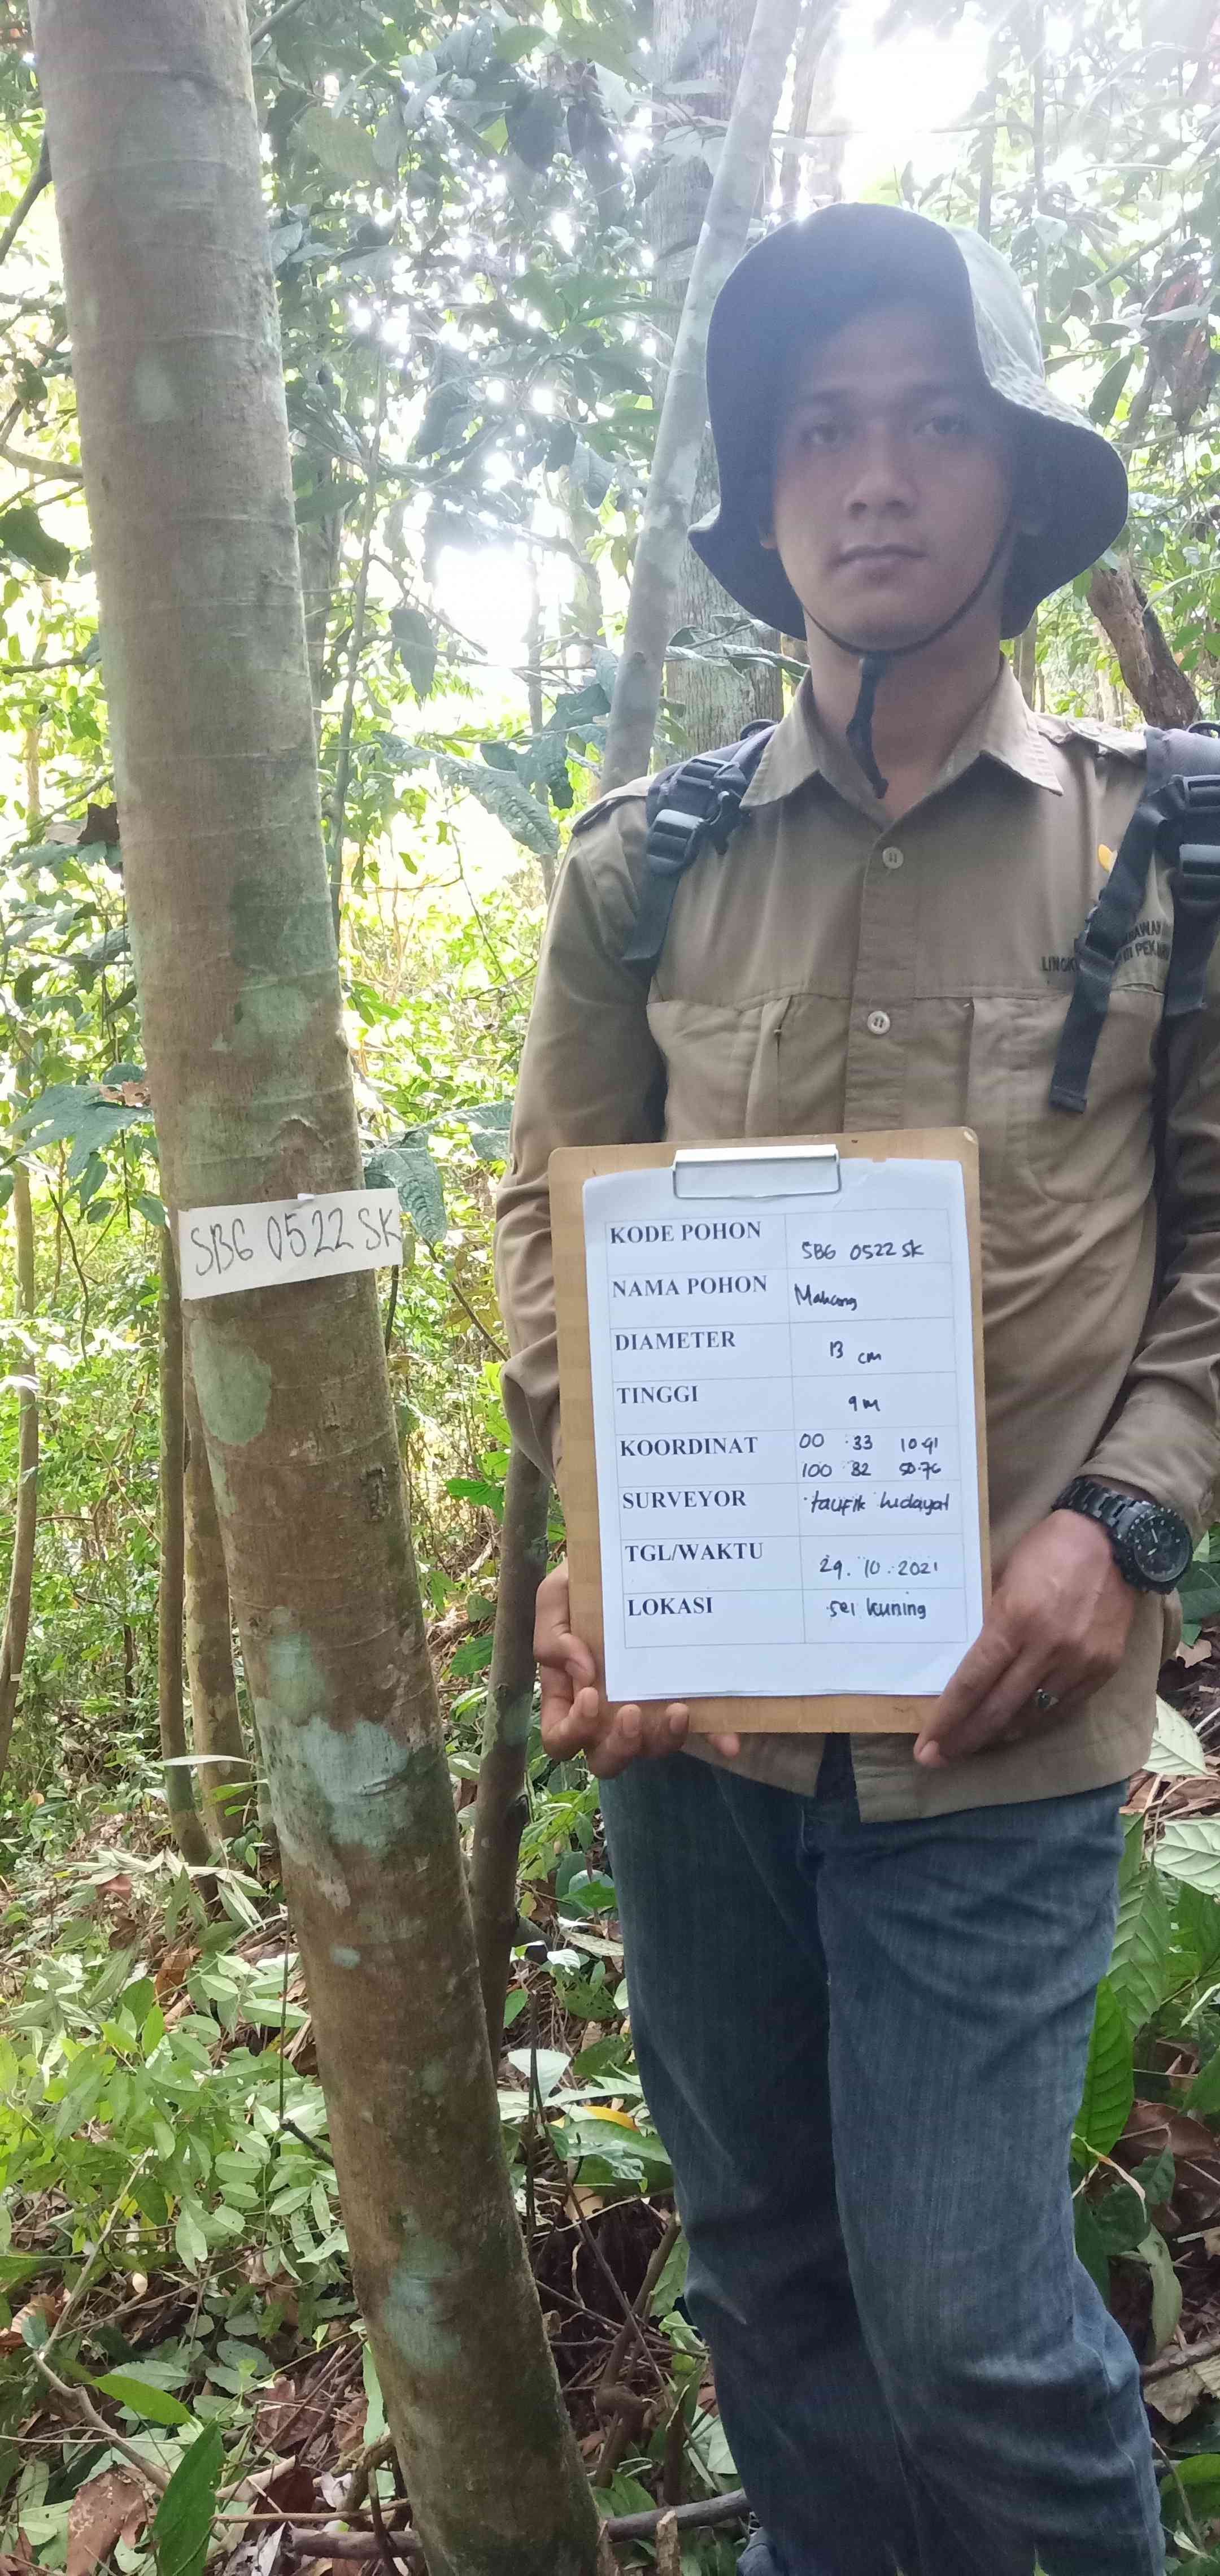 SBG 0522 SK
KODE POHON SBG 0522 SK
NAMA POHON
DIAMETER 13 cm
TINGGI 9 M
KOORDINAT 00 33 10.91
100 82 50.76
SURVEYOR taufik hidayat
TGL/WAKTU 29.10.2021
LOKASI sei kuning